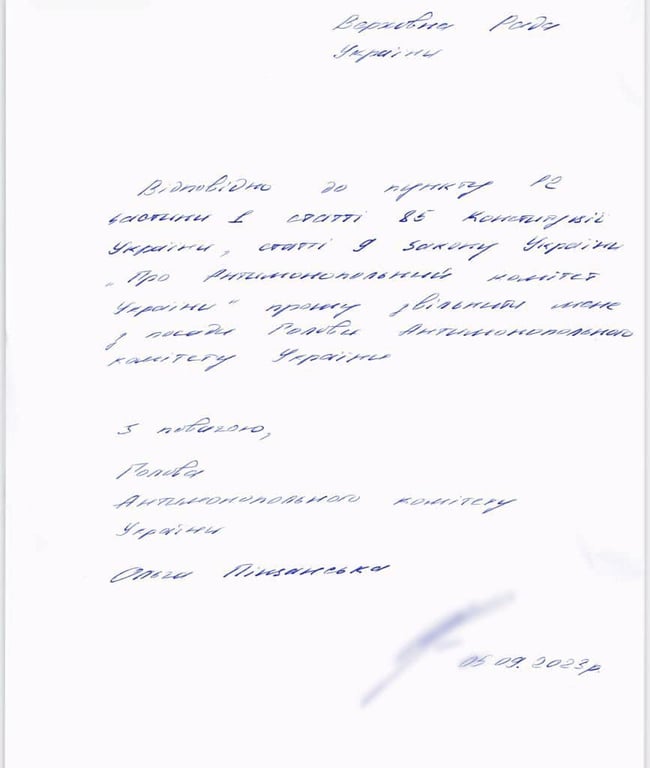 Верховна Рада
України
Відповідно до пункту 12
частини 1 статті 85 Конституції
України, статті 9 Закону України
„Про Антимонопольний комітет
України" прошу звільнити мене
з посади Голови Антимонопольного
комітету України
З повагою,
Голова
Антимонопольного комітету
України
Ольга Піщанська
05.09.2023р.